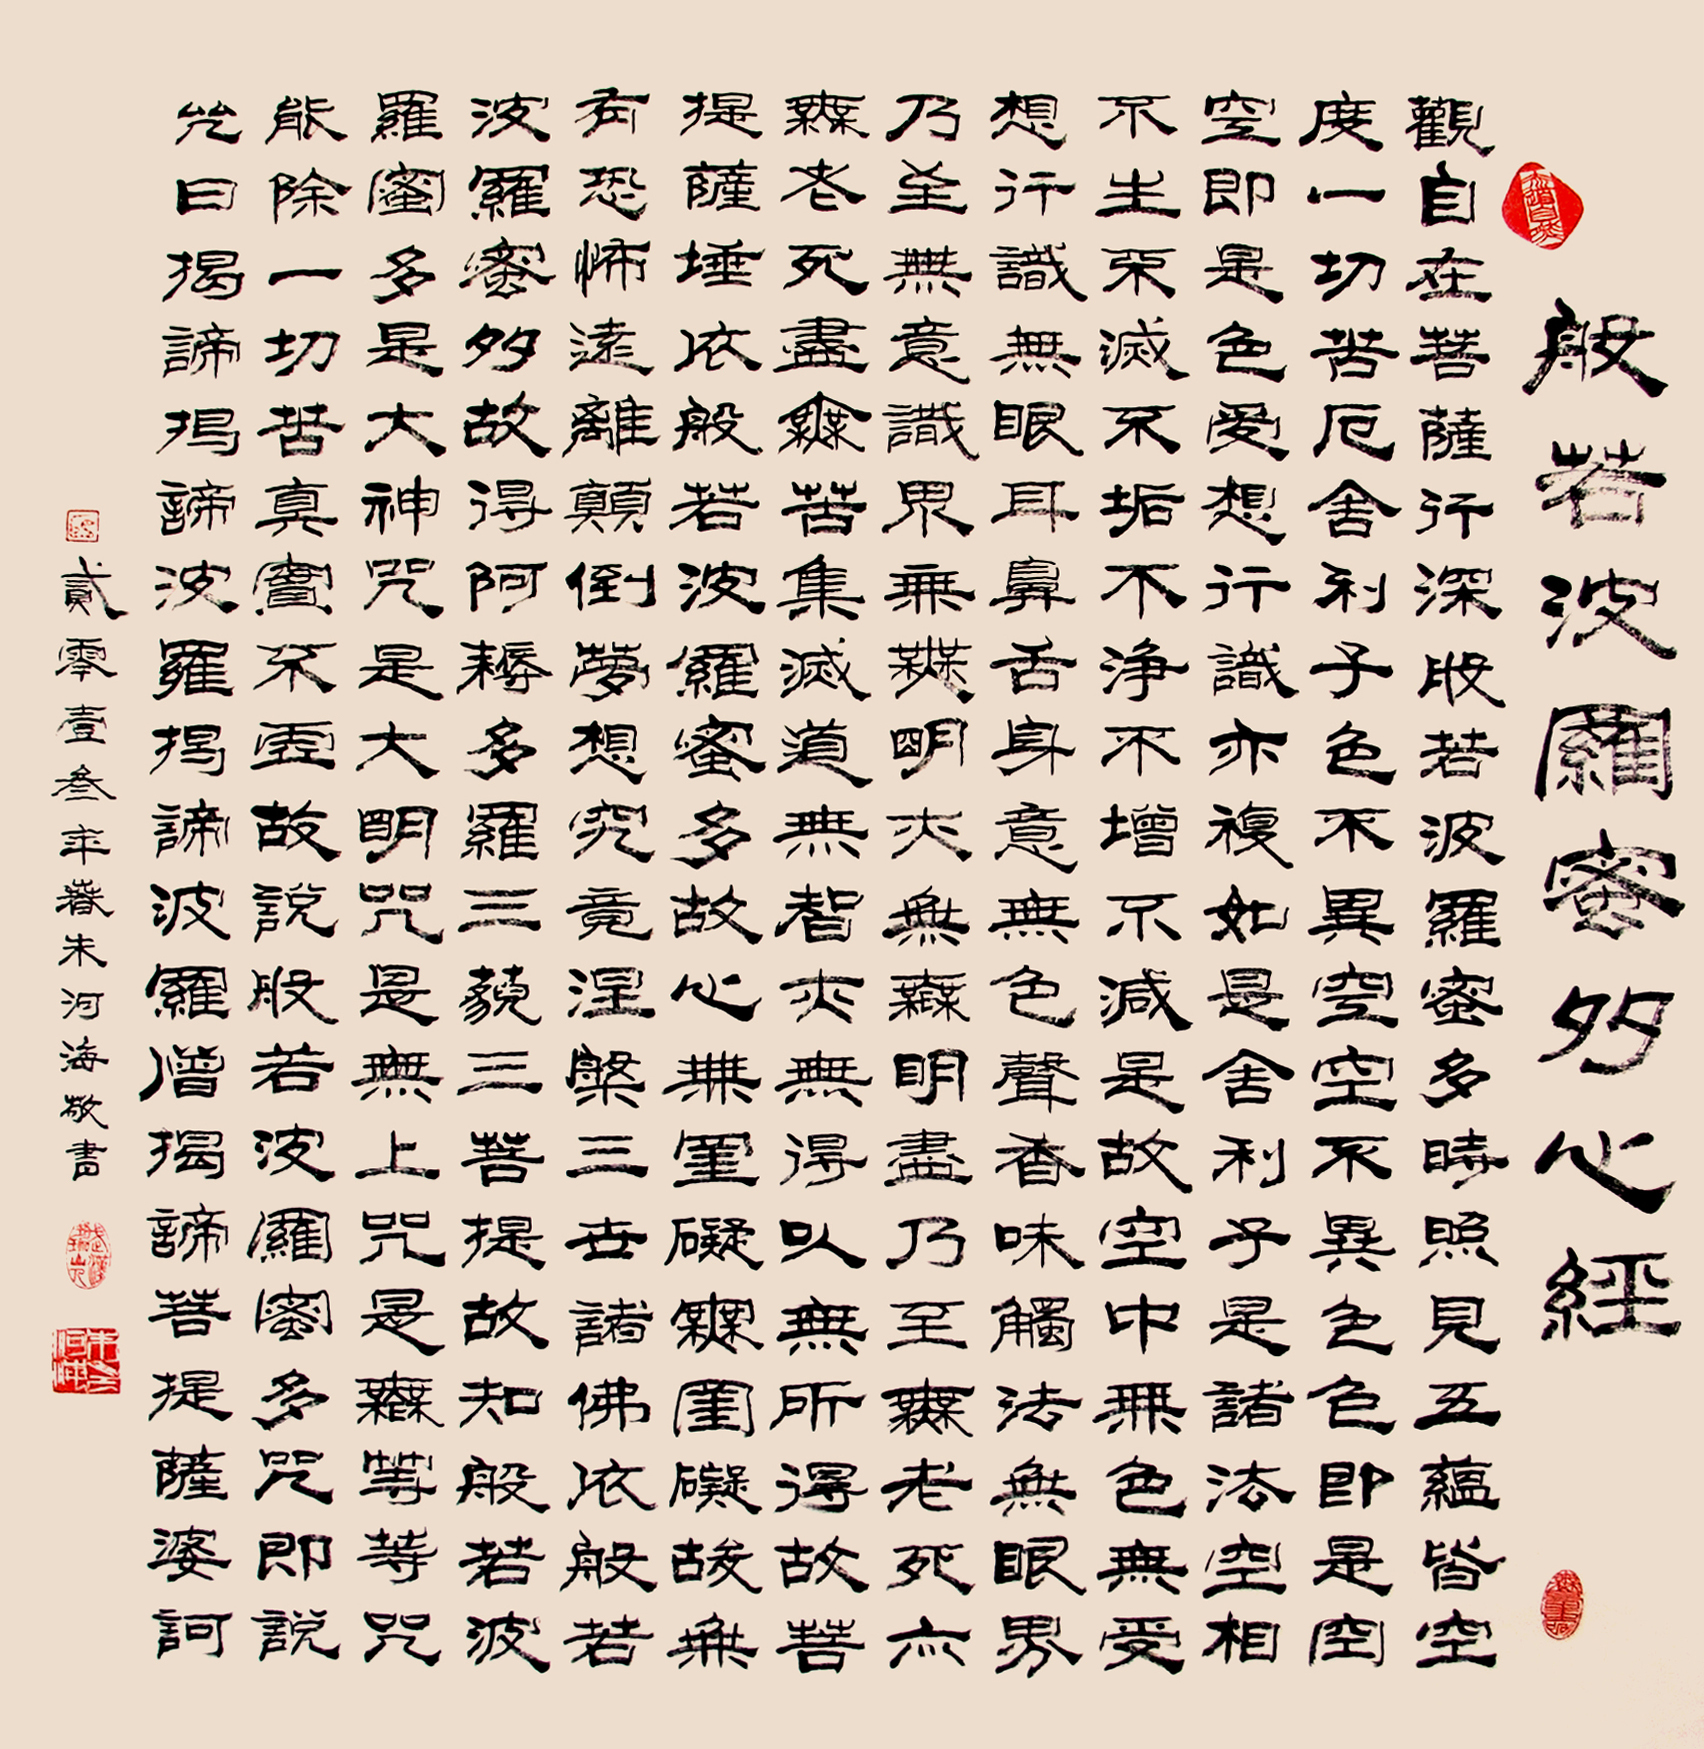 般若波羅蜜多心經
觀自在菩薩行深般若波羅蜜多時照見五蘊皆空
度一切苦厄舍利子色不異空空不異色色即是空
空即是色受想行識亦複如是舍利子是諸法空相
不生不滅不垢不净不增不減是故空中無色無受
想行識無眼耳鼻舌身意無色聲香味觸法無眼界
乃至無意識界無無明亦無無明盡乃至無老死亦
無老死盡無苦集滅道無智亦無得以無所得故菩
提薩埵依般若波羅蜜多故心無罣礙無罣礙故無
有恐怖遠離顛倒夢想究竟涅槃三世諸佛依般若
波羅蜜多故得阿耨多羅三藐三菩提故知般若波
羅蜜多是大神咒是大明咒是無上咒是無等等咒
能除一切苦真實不虛故說般若波羅蜜多咒即說
咒曰揭諦揭諦波羅揭諦波羅僧揭諦菩提薩婆訶
貳零壹叁年春朱河海敬書